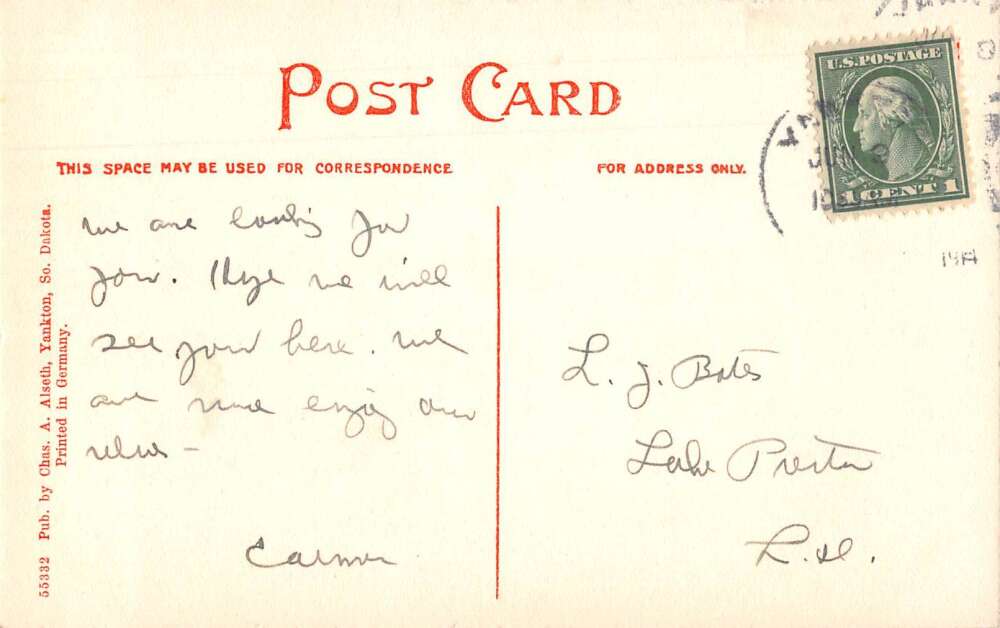 POST CARD
THIS SPACE MAY BE USED FOR CORRESPONDENCE
FOR ADDRESS ONLY.
U.S. POSTAGE
1 CENT 1
1914
55332 Pub. by Chas. A. Alseth, Yankton, So. Dakota.
Printed in Germany.
we are looking for
you. Hope we will
see you here. we
are enjoy our
selves –
Carmen
L. J. Bates
Lake Preston